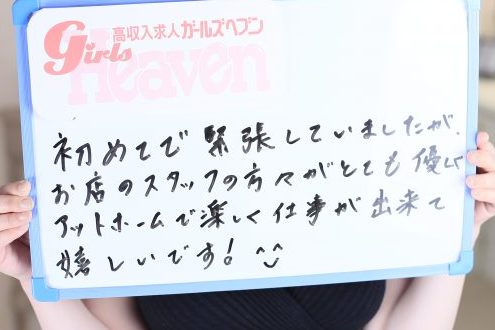 高収入求人ガールズヘブン
Girls
Heaven
初めてで緊張していましたが、
お店のスタッフの方々がとても優しく
アットホームで楽しく仕事が出来て
嬉しいです! ^^